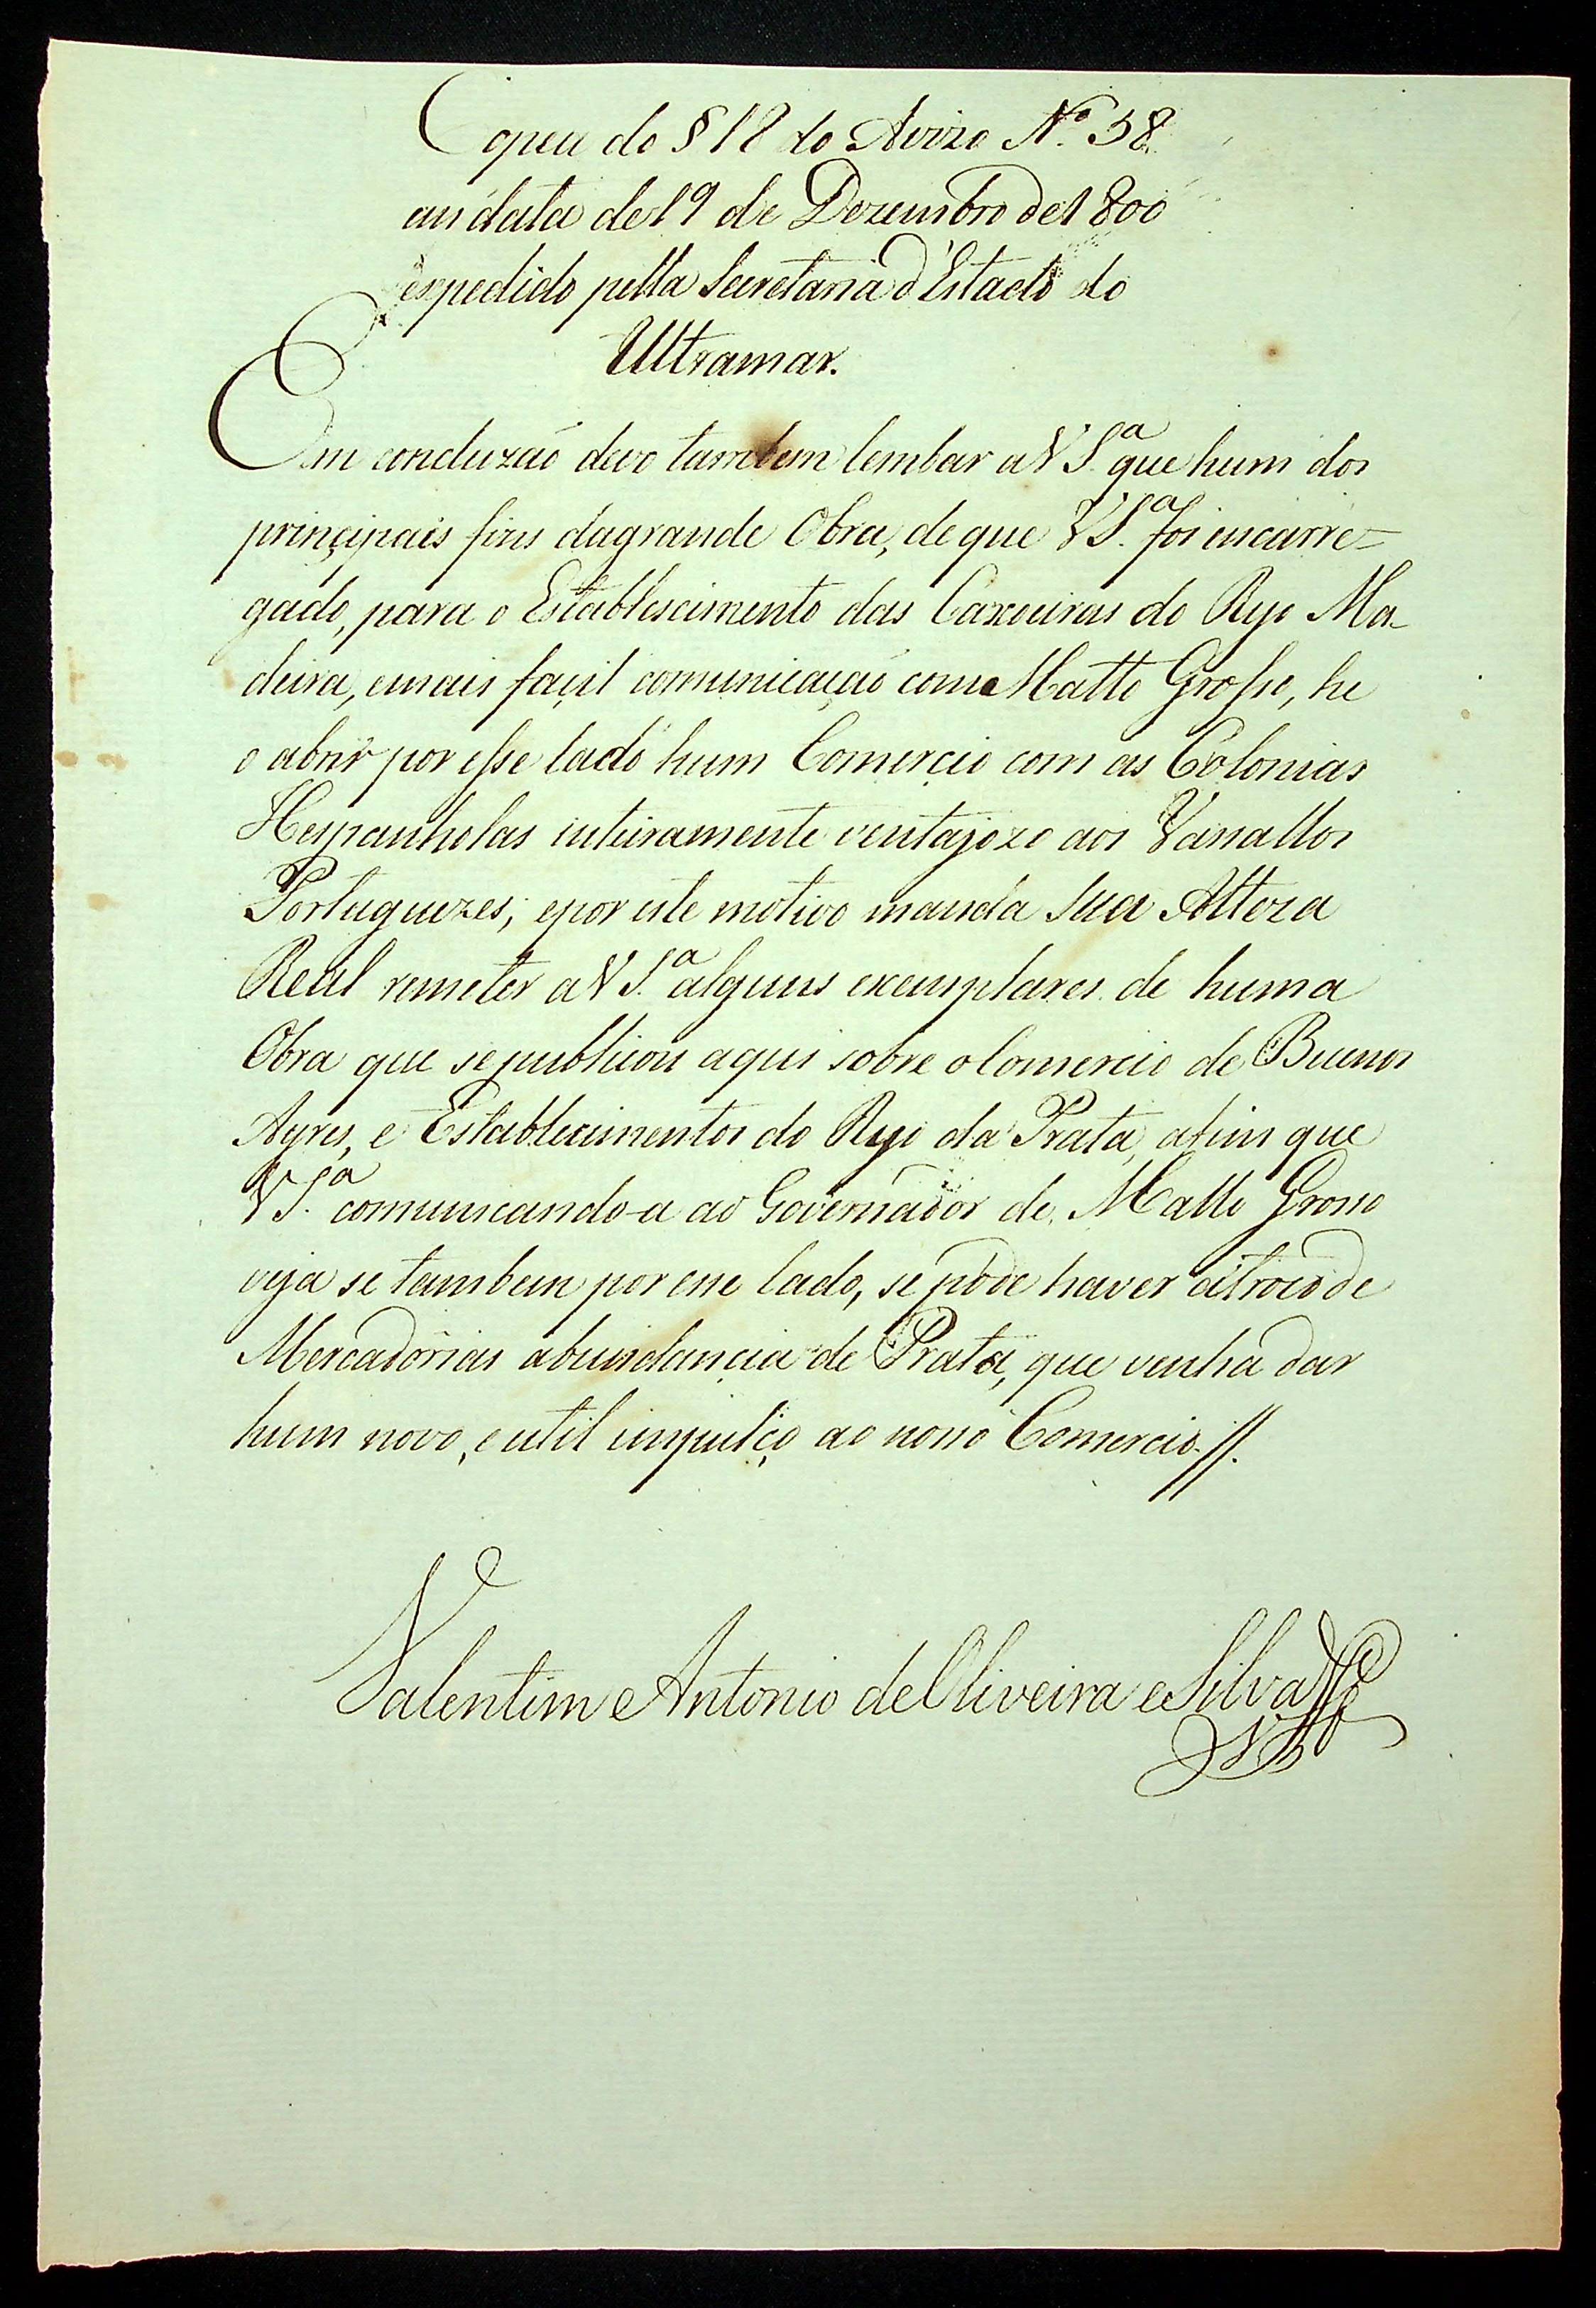 Copea do § 18 do Avizo Nº 38
em data de 19 de Dezembro de 1800
expedido pella Secretaria d'Estado do
Ultramar.
Em concluzaõ devo tambem lembar a V S.ª que hum dos
prinçipais fins dagrande Obra, de que V S.ª foi encarre=
gado, para o Establescimento das Caxoeiras do Ryo Ma-
deira, emais façil comunicaçaõ com o Matto Grosso, he
o abrir por esse lado hum Comerçio com as Colonias
Hespanholas inteiramente ventajozo aos Vassallos
Portuguezes; epor este motivo manda Sua Alteza
Real remeter a V S.ª alguns exemplares de huma
Obra que sepublicou aqui sobre o Comercio de Buenos
Ayres, e Establecimentos do Ryo da Prata, afim que
V S.ª comunicando-a ao Governador de Matto Grosso
veja se tambem por esse lado, se póde haver atroco de
Mercadorias abundançia de Prata, que venha dar
hum novo, e util impulço ao nosso Comercio.//.
Valentim Antonio de Oliveira e Silva